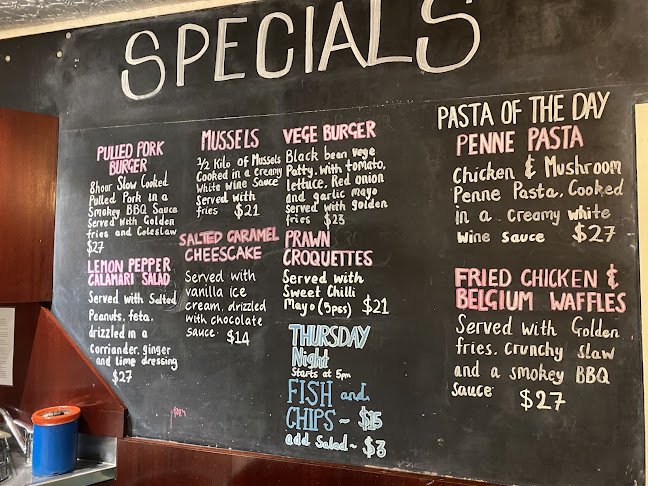 SPECIALS
PULLED PORK
BURGER
8hour Slow Cooked
Pulled Pork in a
Smokey BBQ Sauce
Served with Golden
fries and Coleslaw
$27
LEMON PEPPER
CALAMARI SALAD
Served with Salted
Peanuts, feta,
drizzled in a
corriander, ginger
and lime dressing
$27
MUSSELS
1/2 Kilo of Mussels
Cooked in a creamy
White Wine Sauce
Served with
fries $21
SALTED CARAMEL
CHEESCAKE
Served with
vanilla ice
cream, drizzled
with chocolate
sauce $14
VEGE BURGER
Black bean vege
Patty, with tomato,
lettuce, Red onion
and garlic mayo
Served with golden
fries $23
PRAWN
CROQUETTES
Served with
Sweet Chilli
Mayo (5pcs) $21
THURSDAY
Night
Starts at 5pm
FISH and
CHIPS ~ $15
add Salad ~ $3
PASTA OF THE DAY
PENNE PASTA
Chicken & Mushroom
Penne Pasta, Cooked
in a creamy white
wine sauce $27
FRIED CHICKEN &
BELGIUM WAFFLES
Served with Golden
fries, crunchy slaw
and a smokey BBQ
sauce $27